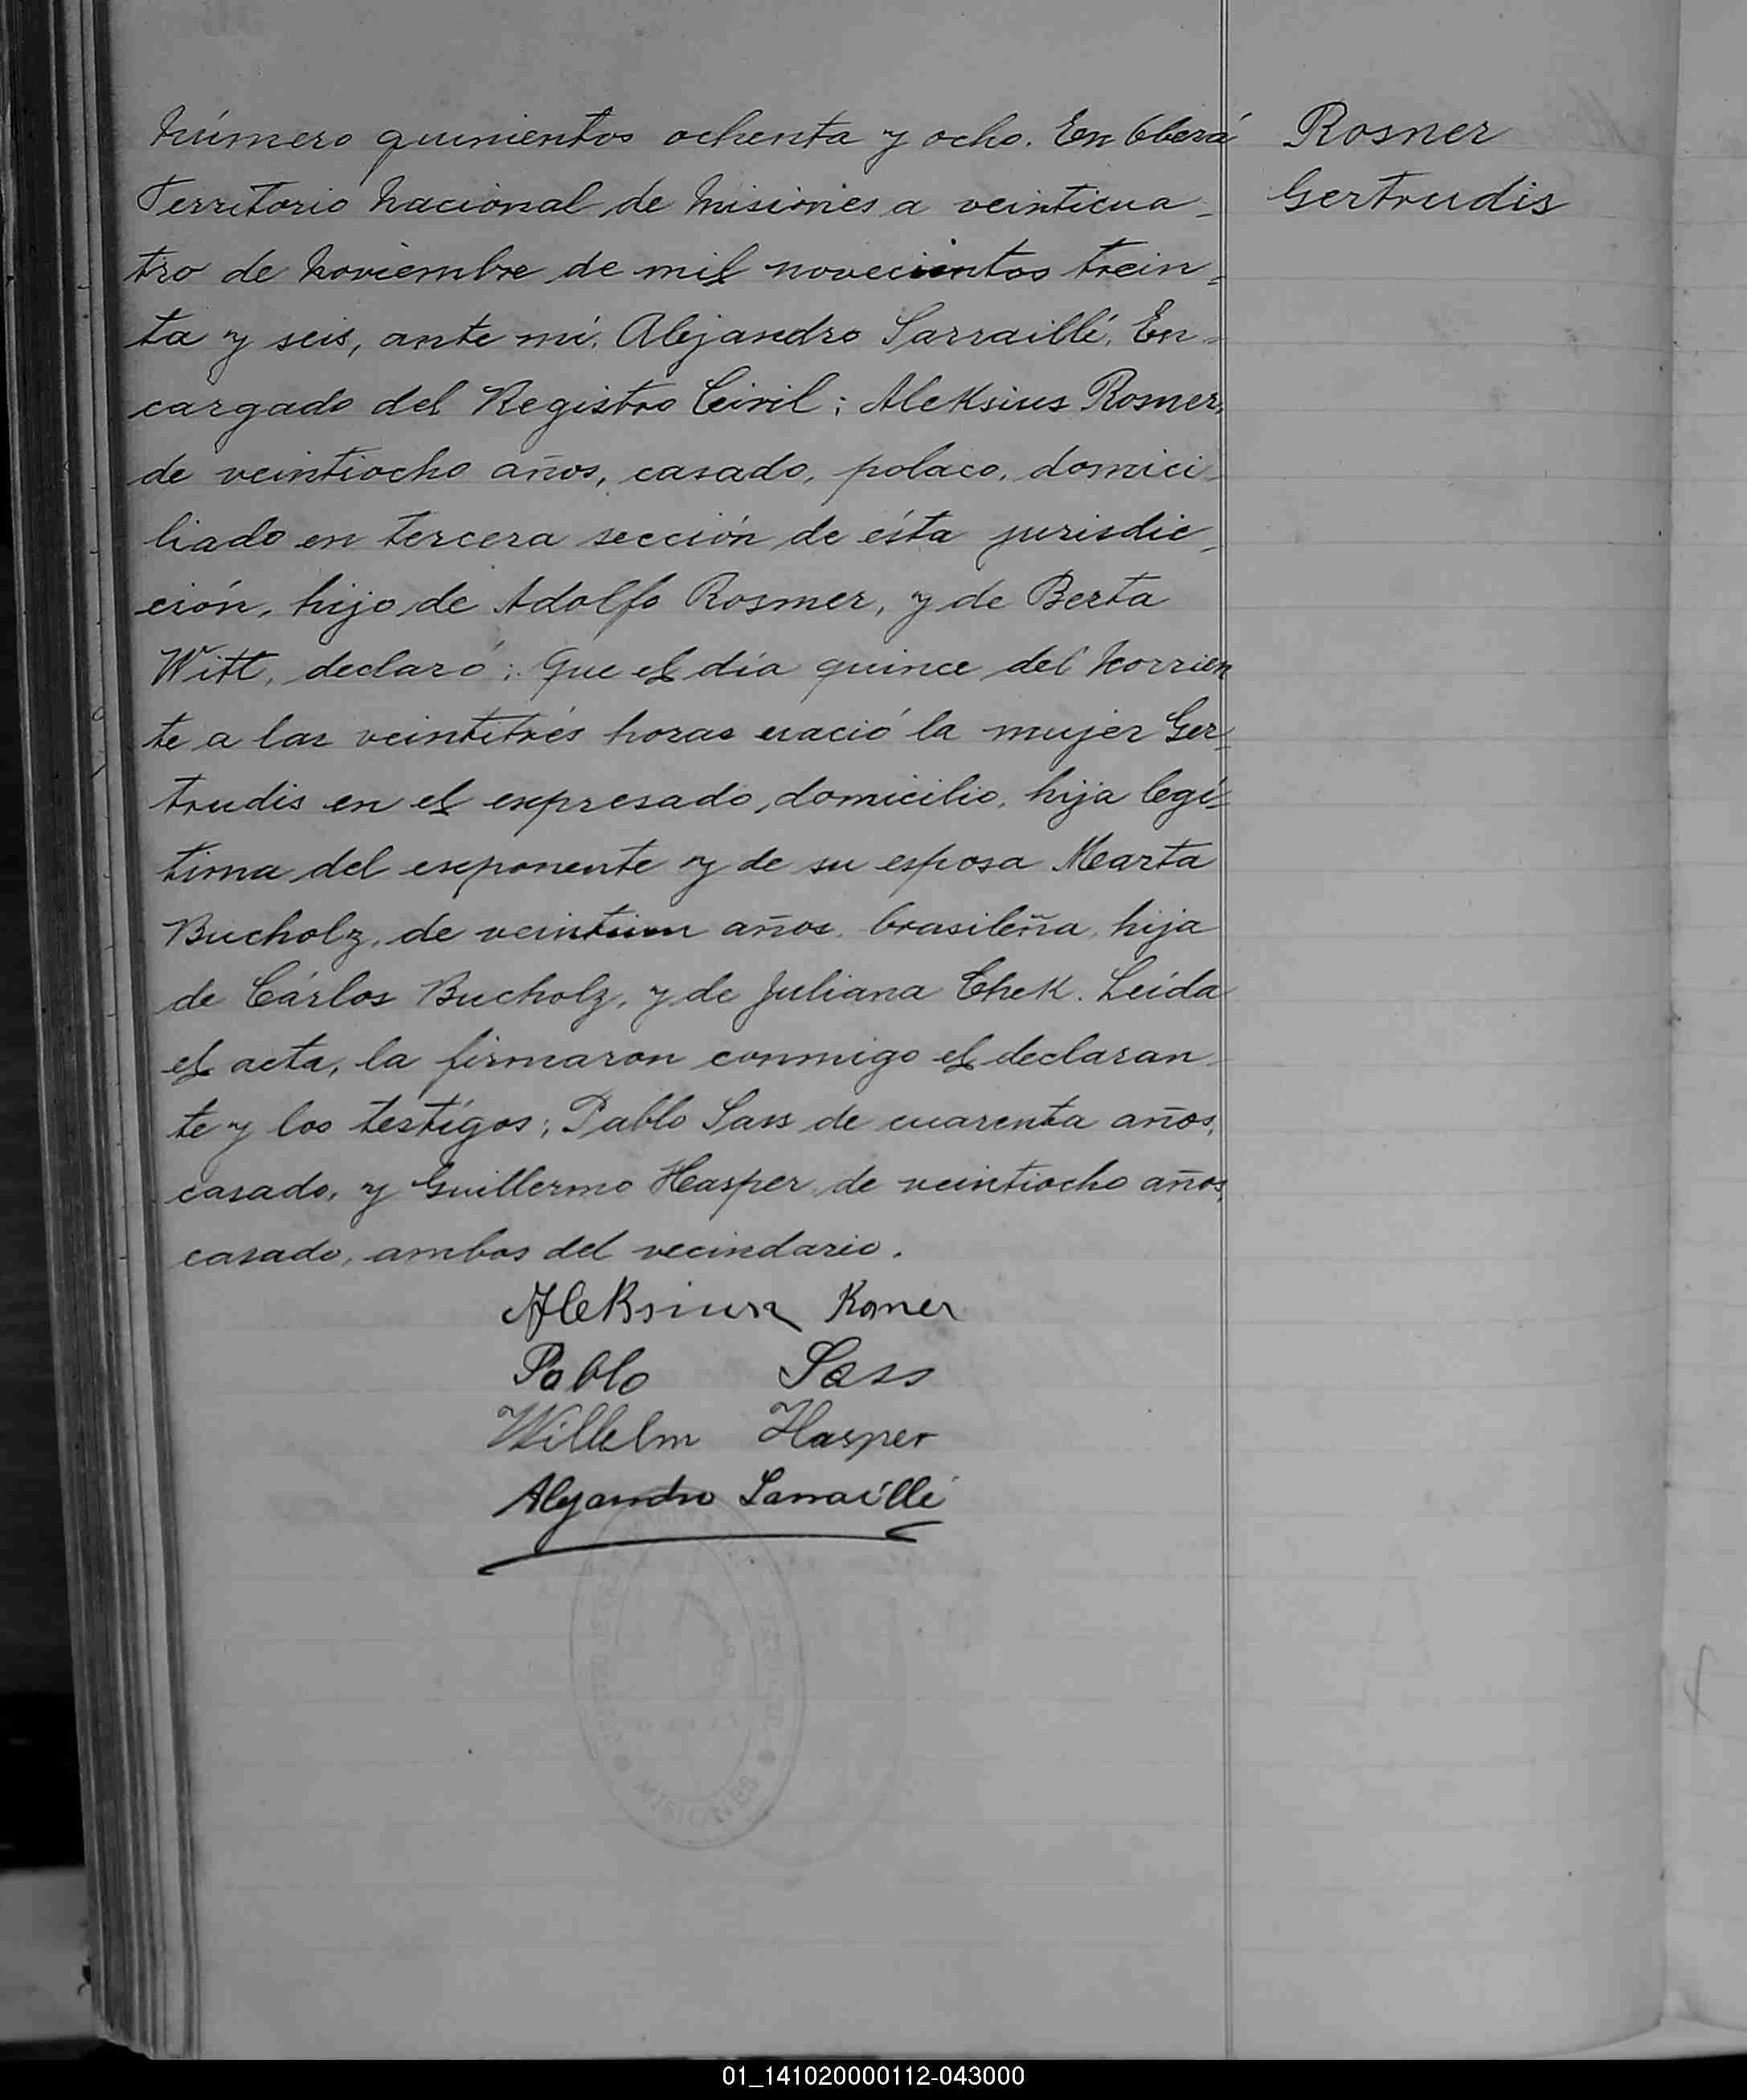 Número quinientos ochenta y ocho. En Oberá
Territorio Nacional de Misiones a veinticua-
tro de Noviembre de mil novecientos trein-
ta y seis, ante mí, Alejandro Sarraillé, En-
cargado del Registro Civil; Aleksius Rosner,
de veintiocho años, casado, polaco, domici-
liado en tercera sección de ésta jurisdic-
ción, hijo de Adolfo Rosmer, y de Berta
Witt, declaró: Que el día quince del corrien
te a las veintitrés horas nació la mujer Ger-
trudis en el expresado domicilio, hija legí-
tima del exponente y de su esposa Marta
Bucholz, de veintiun años, brasileña, hija
de Cárlos Bucholz, y de Juliana Chek. Leída
el acta, la firmaron conmigo el declaran-
te y los testigos; Pablo Sass de cuarenta años,
casado, y Guillermo Hasper de veintiocho años,
casado, ambos del vecindario.
Rosner
Gertrudis
Aleksius Rosner
Pablo Sass
Wilhelm Hasper
Alejandro Sarraillé
MISIONES
01_141020000112-043000